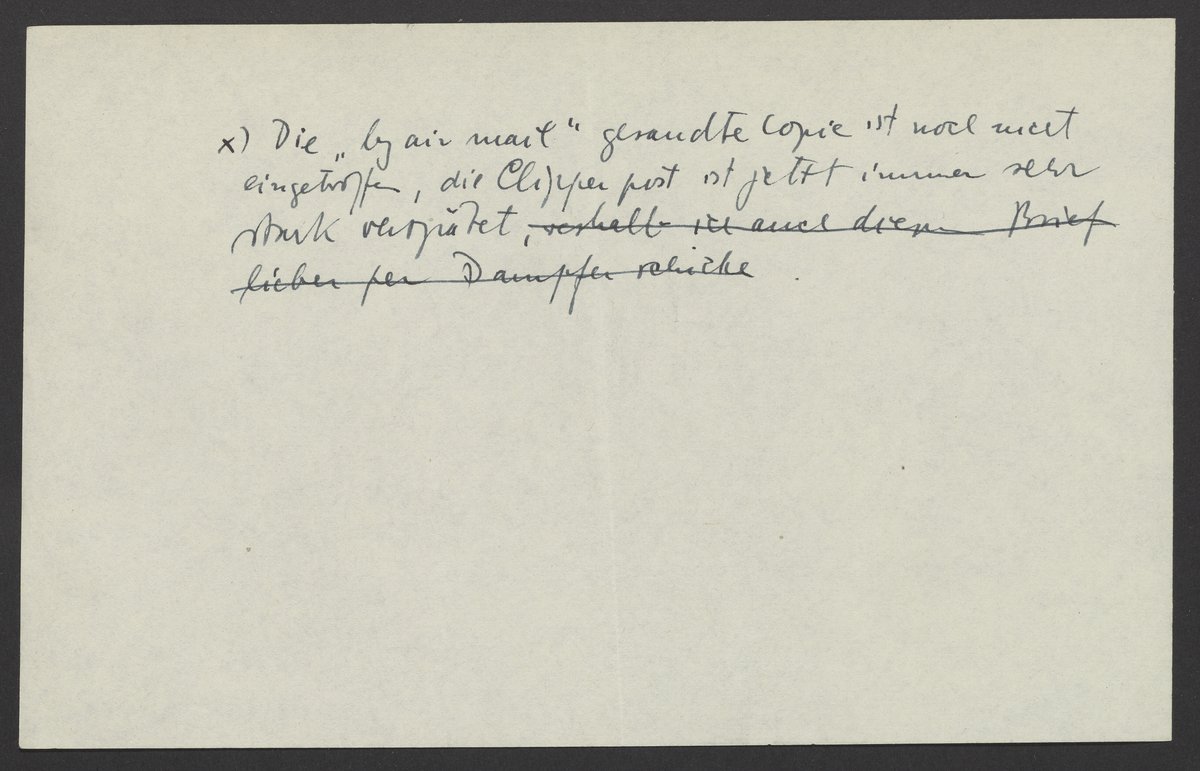 x) Die „by air mail“ gesandte Copie ist noch nicht
eingetroffen, die Clipper post ist jetzt immer sehr
stark verspätet, weshalb ich auch diesen Brief
lieber per Dampfer schicke .